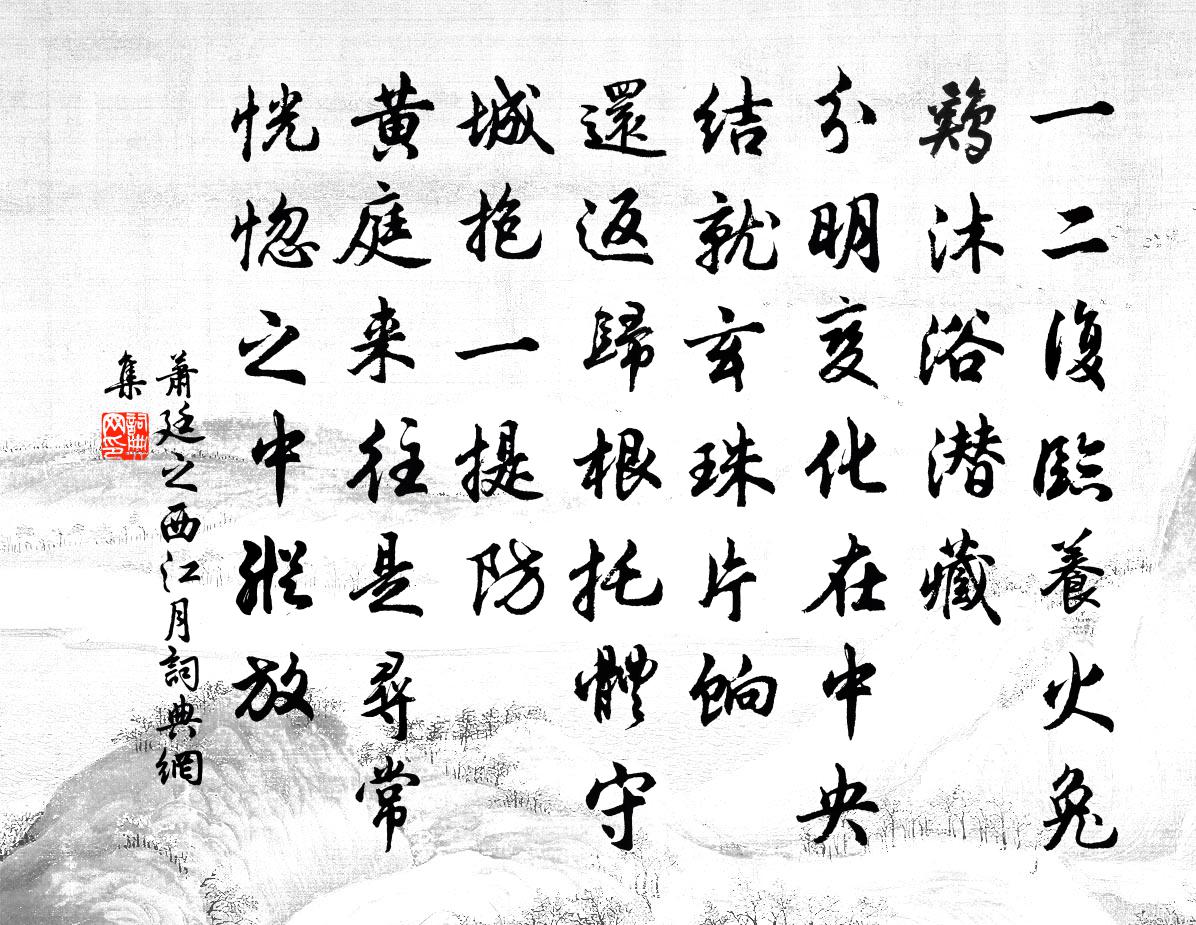 一二復臨養火兔
鷄沐浴潜藏
分明变化在中央
結就玄珠片餉
還返歸根托體守
城抱一提防
黃庭来往是尋常
恍惚之中縱放
蕭廷之西江月詞典網
集
詞典
网印